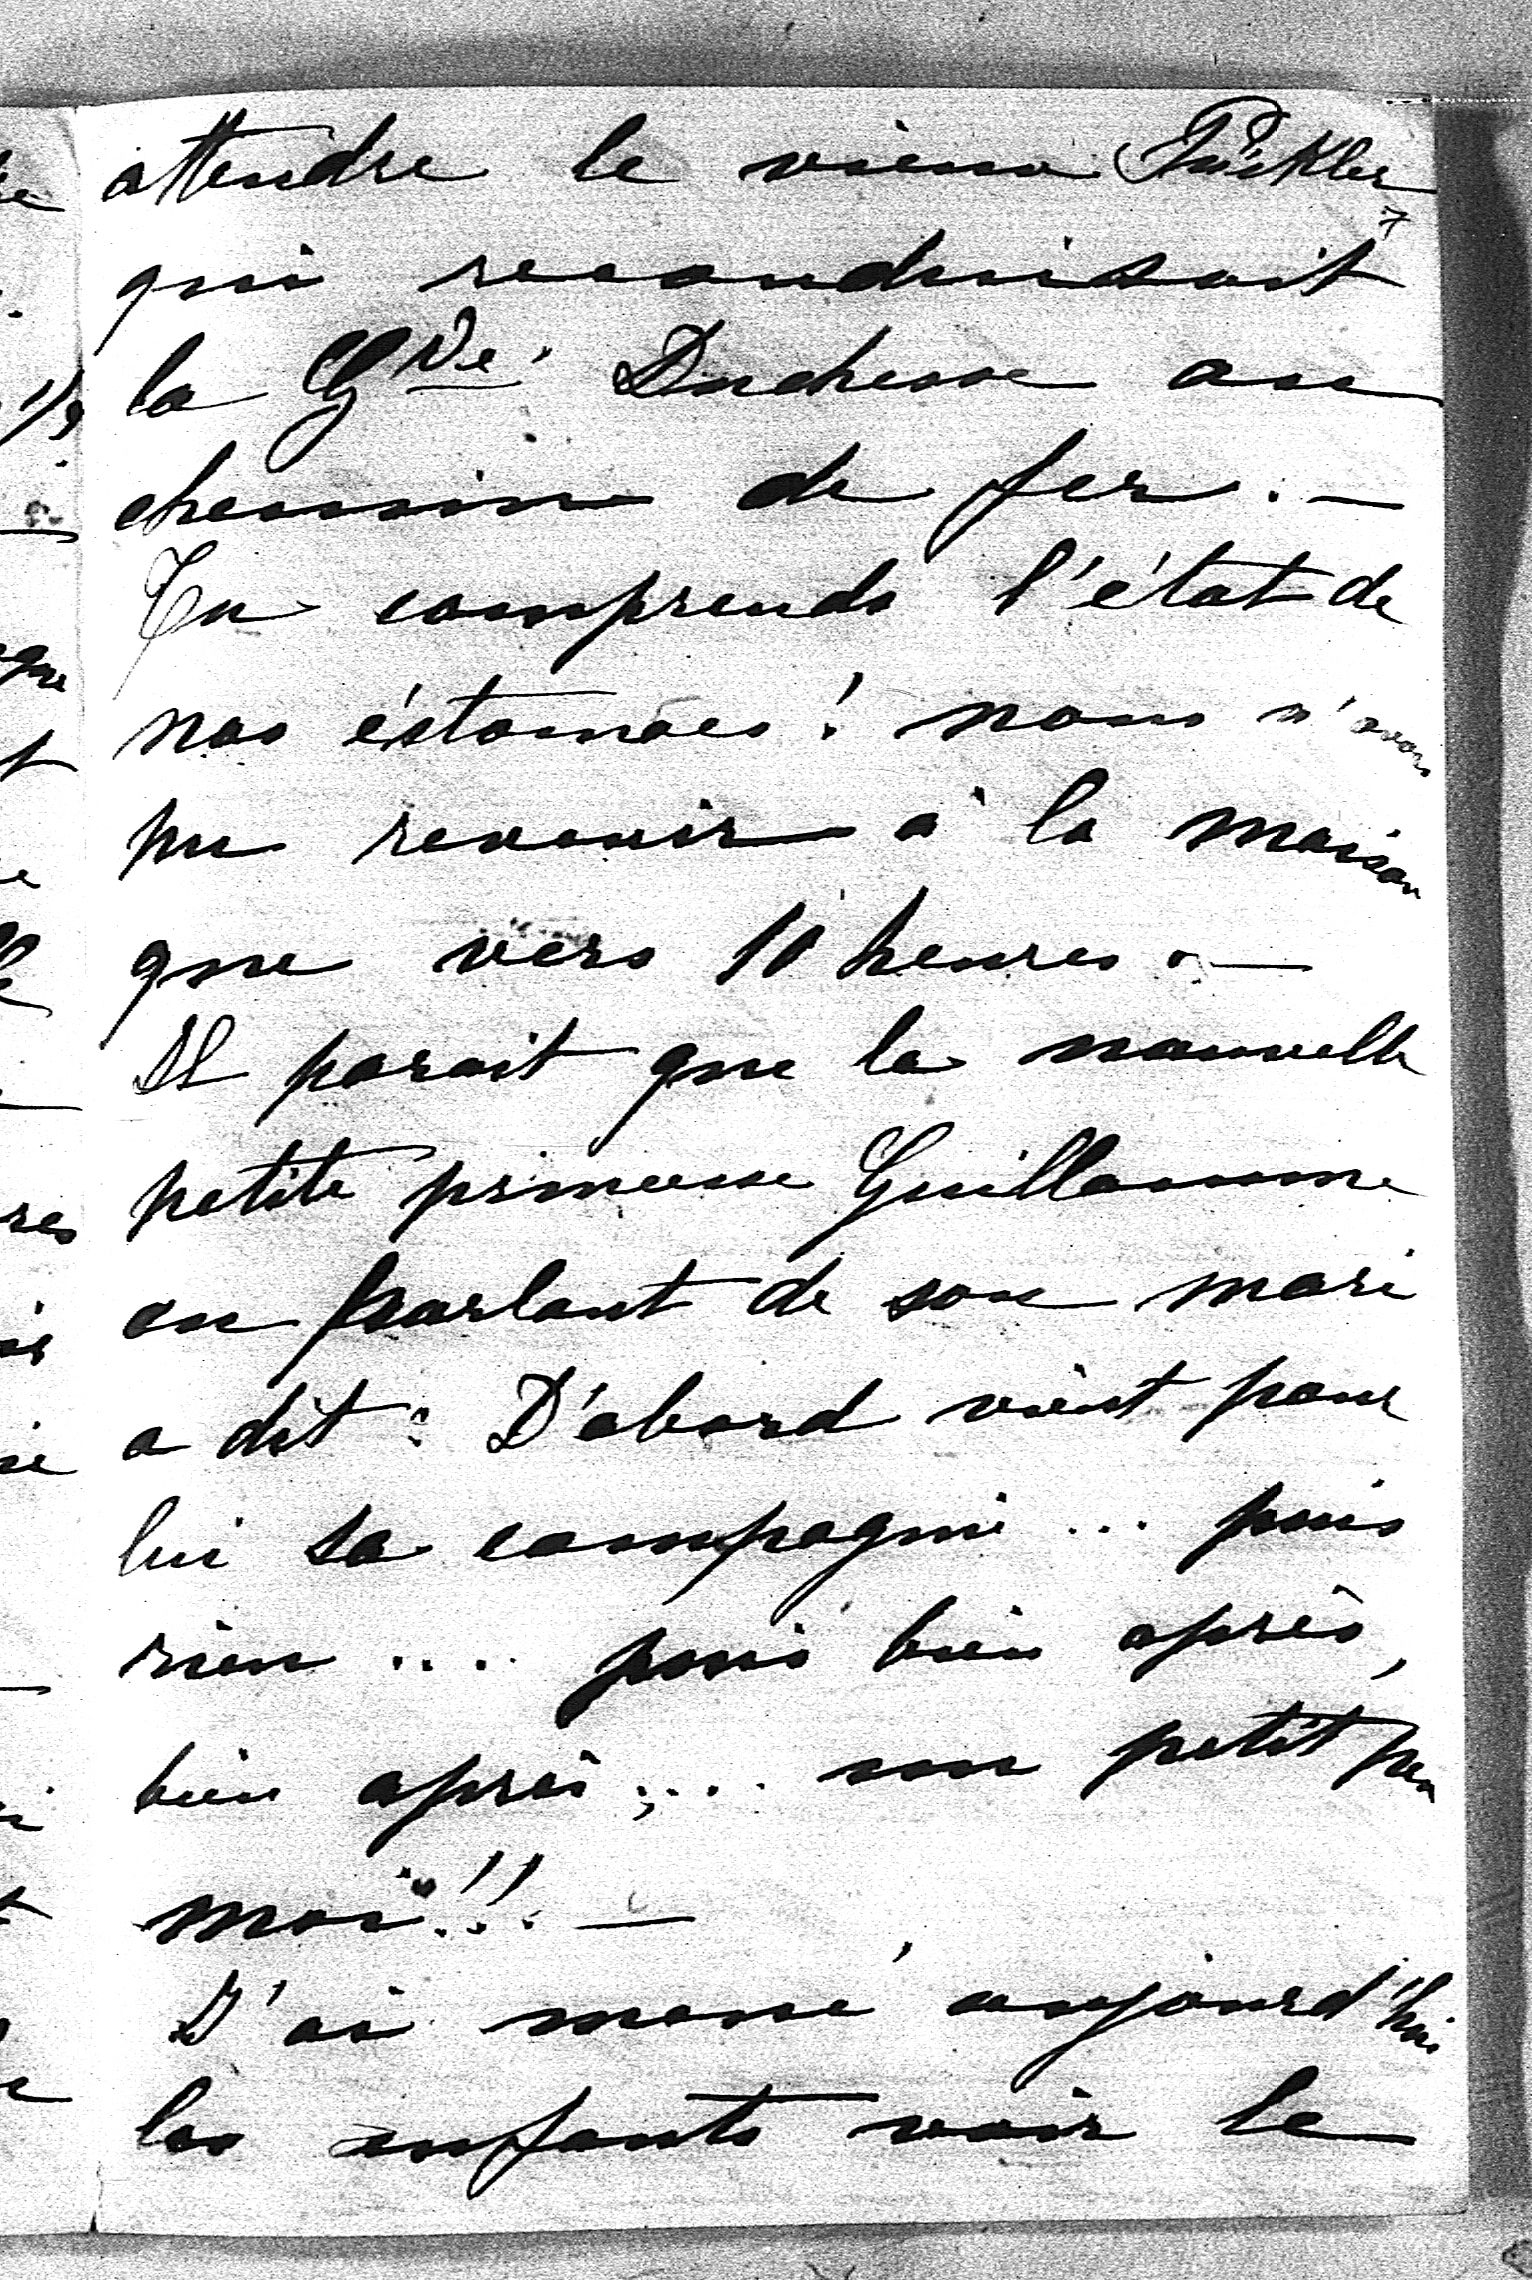 attendre le vieux Pückler
qui reconduisait
la Gde Duchesse au
chemin de fer. —
Tu comprends l'état de
nos éstomacs! nous n'avons
pu revenir à la maison
que vers 10 heures. —
Il parait que la nouvelle
petite princesse Guillaume
en parlant de son mari
a dit: D'abord vient pour
lui sa compagnie ... puis
rien .... puis bien après,
bien après, ... un petit peu
moi!! —
J'ai mené aujourd'hui
les enfants voir le